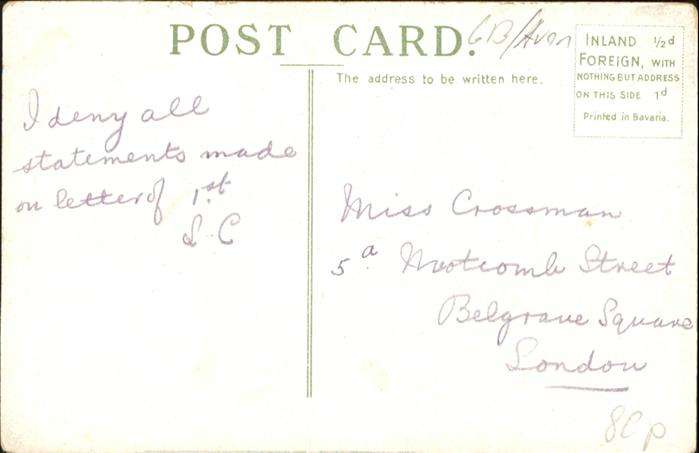 POST CARD.
GB/Avon
INLAND ½d
FOREIGN, WITH
NOTHING BUT ADDRESS
ON THIS SIDE 1d
Printed in Bavaria.
The address to be written here.
I deny all
statements made
on letter of 1.st
S. C
Miss Crossman
5a Motcomb Street
Belgrave Square
London
80p